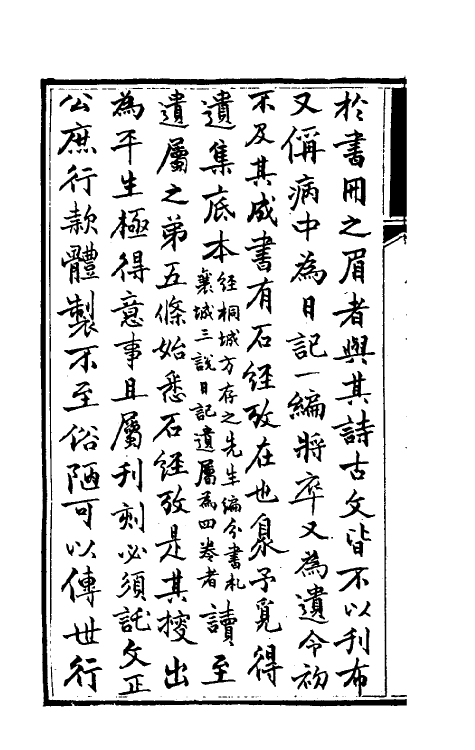 於書冊之眉者與其詩古文皆不以刊布
又偁病中為日記一編將卒又為遺令初
不及其成書有石經攷在也泉予覓得
遺集底本經桐城方存之先生編分書札
襄城三說日記遺屬為四卷者讀至
遺屬之弟五條始悉石經攷是其𢷬出
為平生極得意事且屬刊刻必須託文正
公庶行款體製不至俗陋可以傳世行